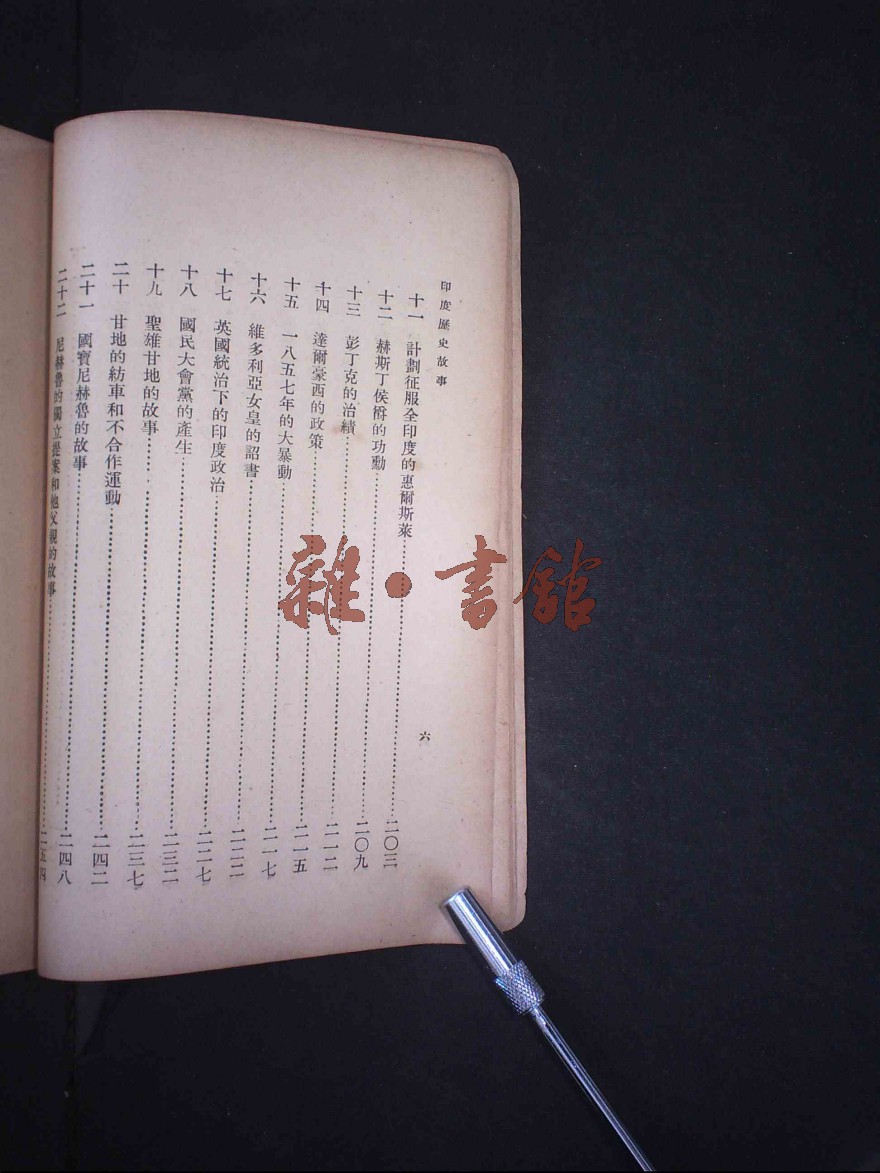 印度歷史故事
十一 計劃征服全印度的惠爾斯萊……二〇三
十二 赫斯丁侯爵的功勳……二〇九
十三 彭丁克的治績……二一二
十四 達爾豪西的政策……二一五
十五 一八五七年的大暴動……二一七
十六 維多利亞女皇的詔書……二二二
十七 英國統治下的印度政治……二二七
十八 國民大會黨的產生……二三二
十九 聖雄甘地的故事……二三七
二十 甘地的紡車和不合作運動……二四二
二十一 國寶尼赫魯的故事……二四八
二十二 尼赫魯的獨立提案和他父親的故事……二五四
六
雜·書館